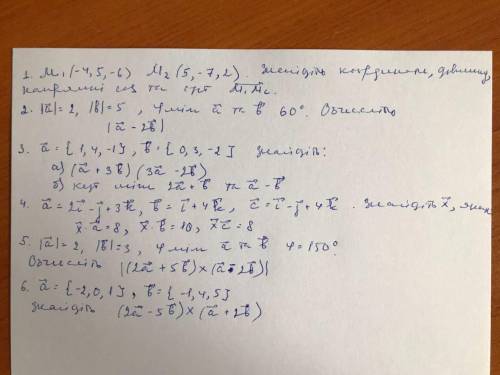 1. M₁(-4,5,-6) M₂(5,-7,2). Знайдіть координати, довжину,
напрямні cos та орт M₁M₂.
2. |a⃗|=2, |b⃗|=5, ∢ між a⃗ та b⃗ 60°. Обчисліть
|a⃗-2b⃗|
3. a⃗={1,4,-1}, b⃗={0,3,-2} знайдіть:
а) (a⃗+3b⃗)(3a⃗-2b⃗)
б) кут між 2a⃗+b⃗ та a⃗-b⃗
4. a⃗=2i⃗-j⃗+3k⃗, b⃗=i⃗+4k⃗, c⃗=i⃗-j⃗+4k⃗. знайдіть x⃗, якщо
x⃗·a⃗=8, x⃗·b⃗=10, x⃗c⃗=8
5. |a⃗|=2, |b⃗|=3, ∢ між a⃗ та b⃗ φ=150°.
Обчисліть |(2a⃗+5b⃗)×(a⃗-2b⃗)|
6. a⃗={-2,0,1}, b⃗={-1,4,5}
знайдіть (2a⃗-5b⃗)×(a⃗+2b⃗)